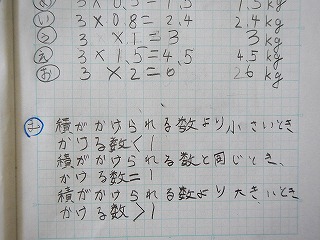 3×0.5=1.5 1.5kg
い 3×0.8=2.4 2.4kg
う 3 ×1=3 3kg
え 3×1.5=4.5 4.5kg
お 3 ×2=6 6kg
ま 積がかけられる数より小さいとき
かける数<1
積がかけられる数と同じとき、
かける数=1
積がかけられる数より大きいとき
かける数>1